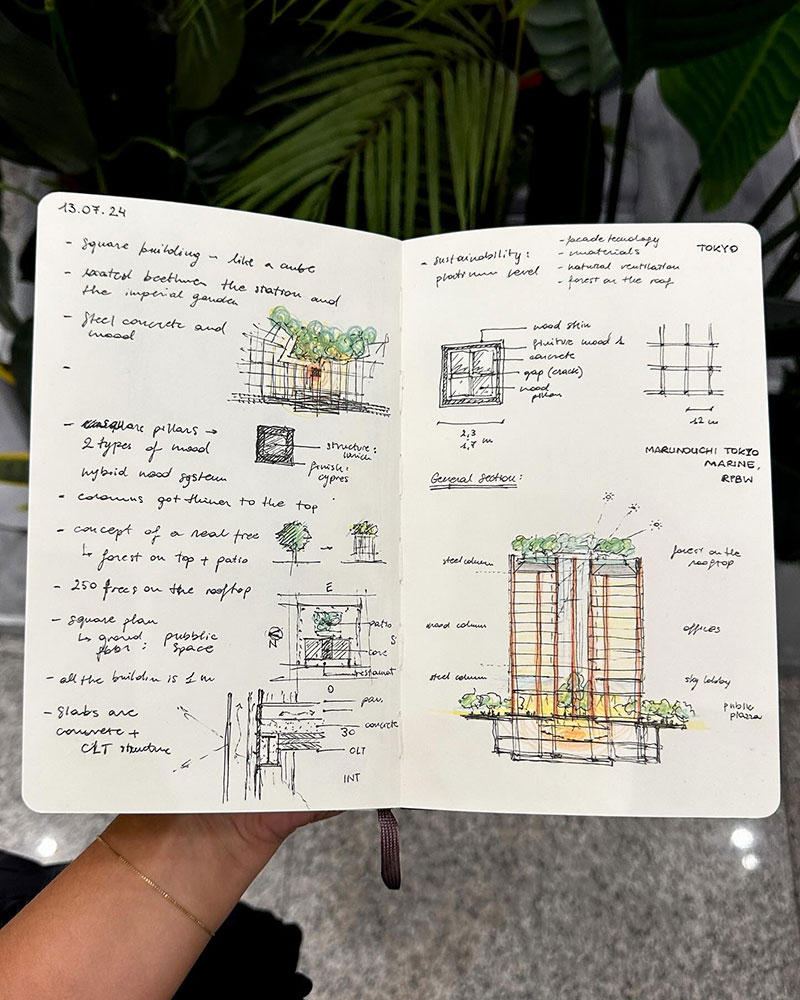 13.07.24
- square building - like a cube
- located beethwen the station and
the imperial garden
- Steel concrete and
wood
-
- square pillars →
2 types of wood
hybrid wood system
structure:
finish:
cypres
- columns got thiner to the top
- concept of a real tree
↳ forest on top + patio
- 250 trees on the rooftop
- square plan
↳ grand pubblic
floor: space
E
N
patio
S
core
restaurat
O
- all the buildin is 1 m
- Slabs are
concrete +
CLT structure
pav.
concrete
30
CLT
INT
TOKYO
- sustainability:
platinum level
- facade tecnology
- materials
- natural ventilation
- forest on the roof
wood skin
finiture wood
concrete
gap (crack)
wood
pillar
2,3
1,7 m
12 m
MARUNOUCHI TOKYO
MARINE,
RPBW
General Section:
steel column
forest on the
rooftop
wood column
offices
steel column
sky lobby
public
plazza